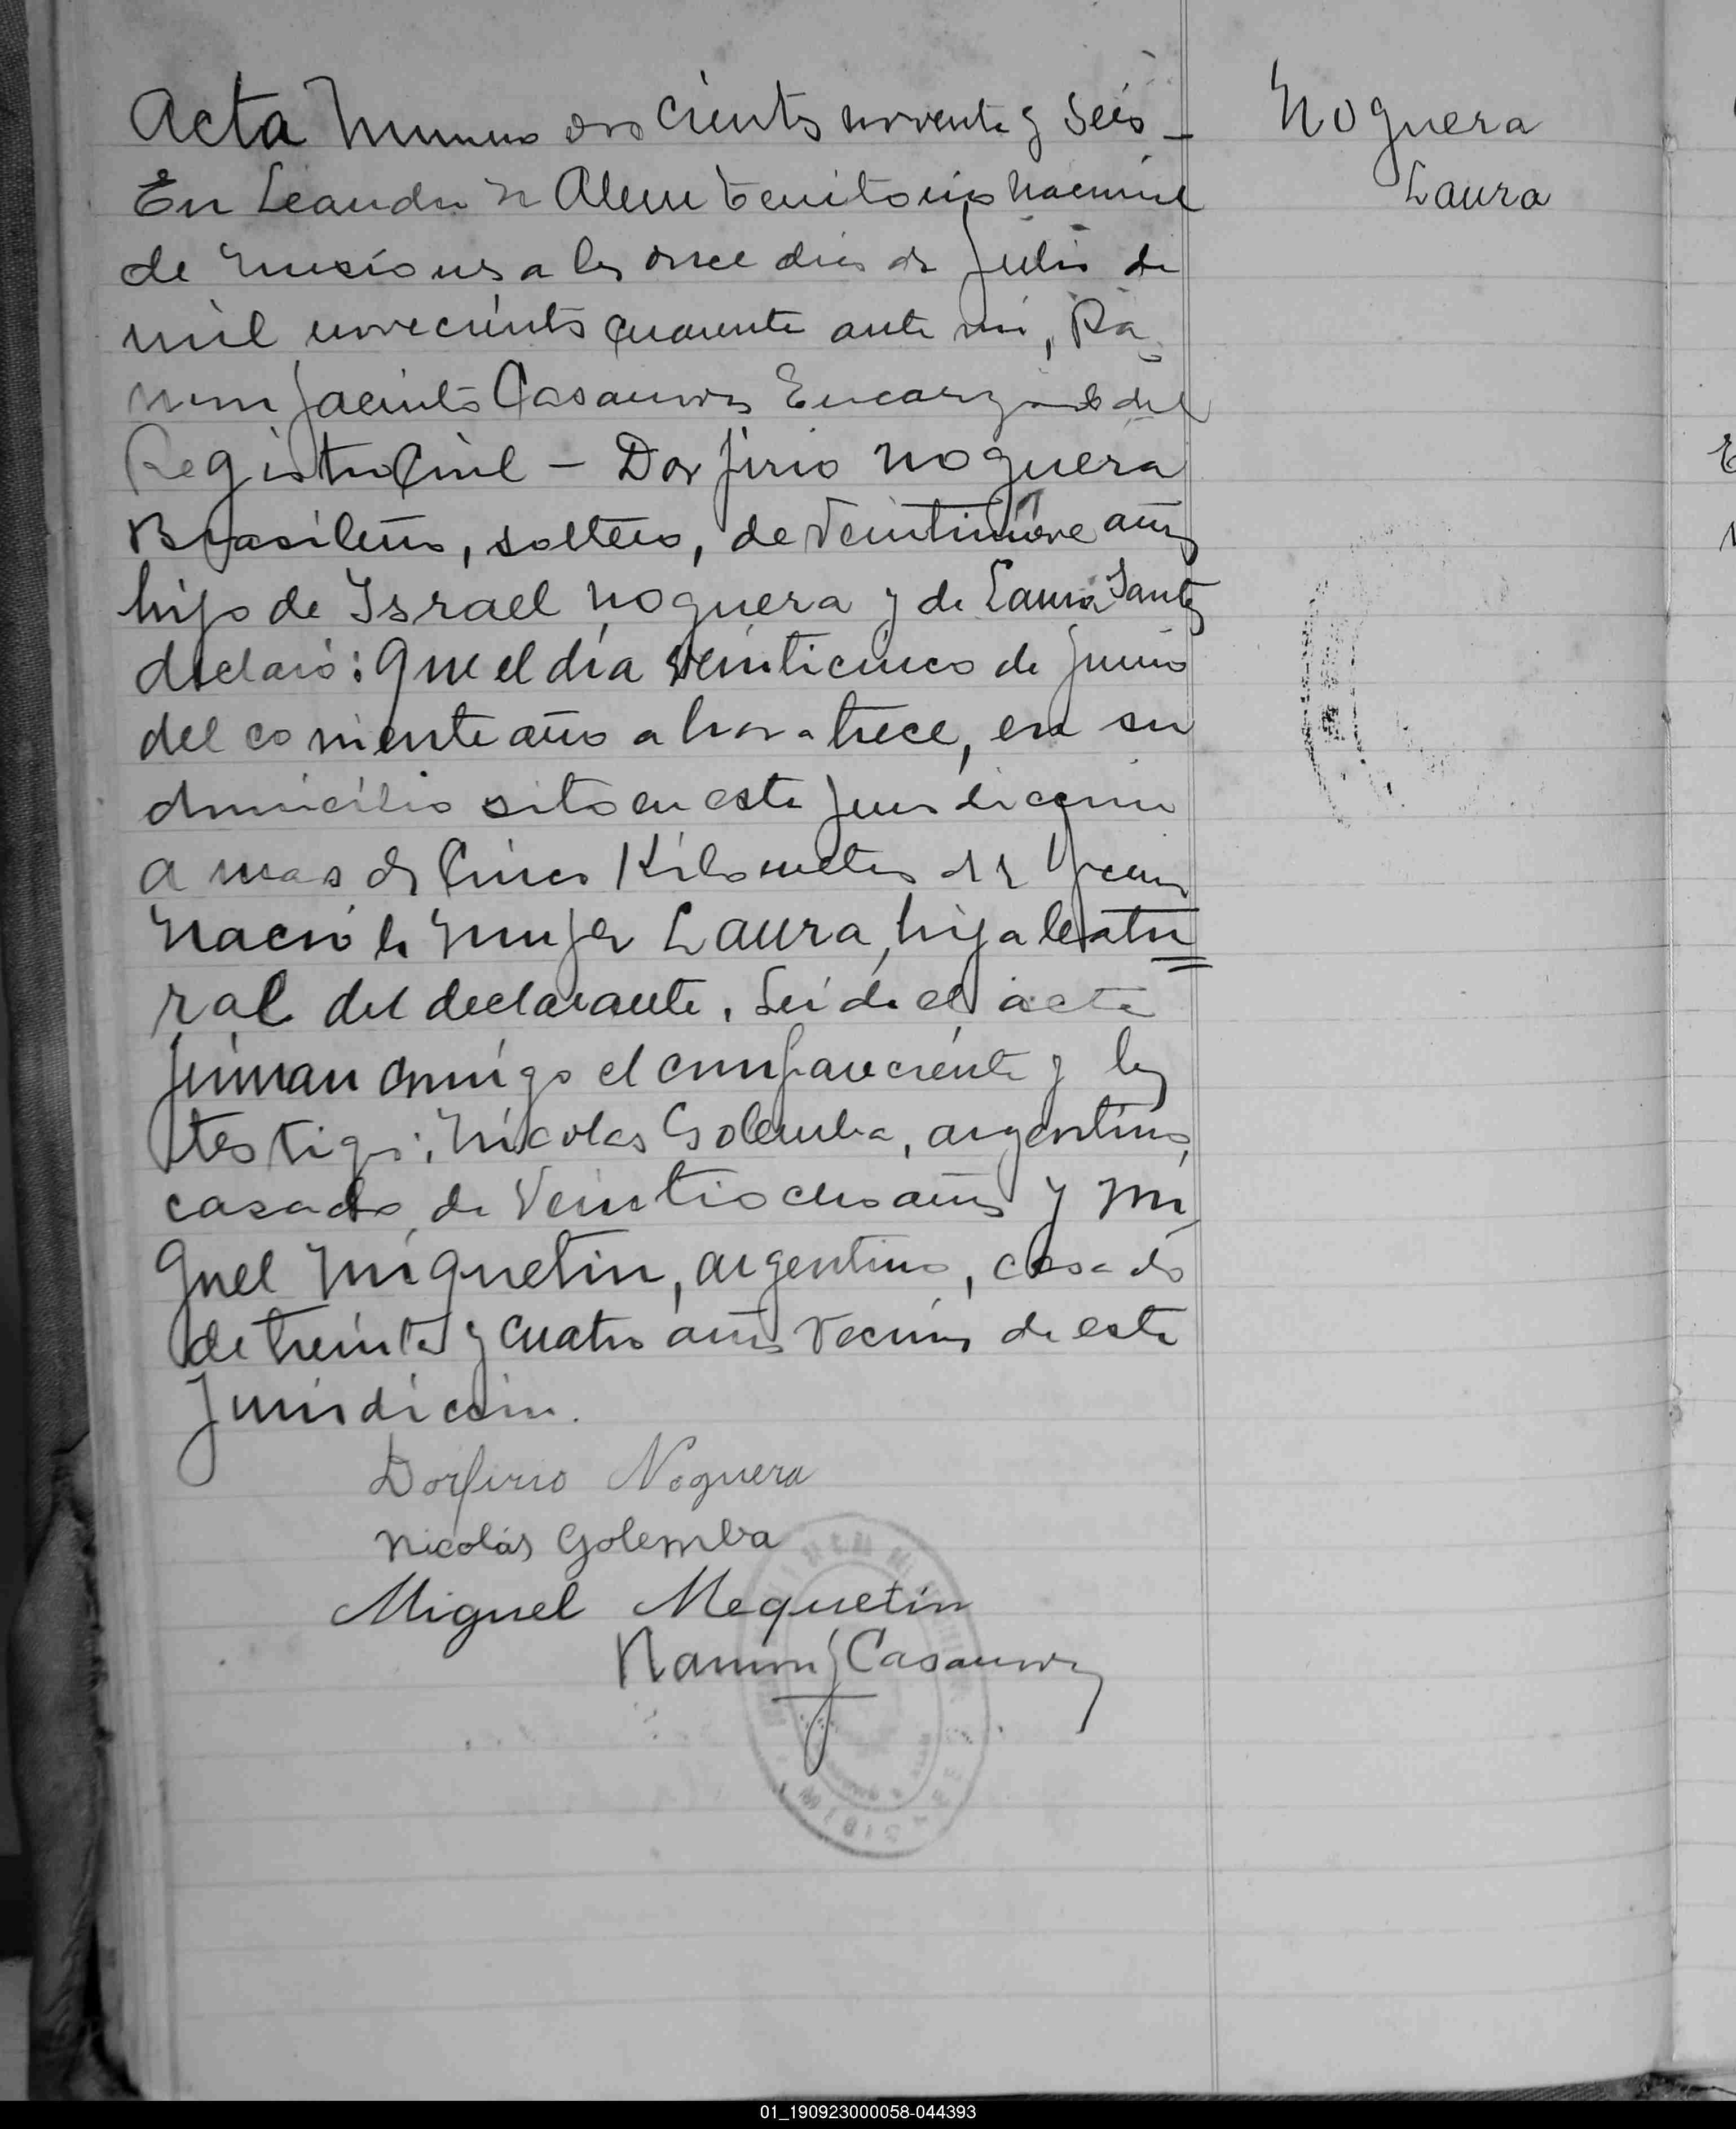 Acta Numero doscientos noventa y seis –
En Leandro N Alem territorio nacional
de Misiones a los once dias de Julio de
mil novecientos cuarenta ante mi, Ra
mon Jacinto Casanova Encargado del
Registro Civil – Dorfirio Noguera
Brasileño, soltero, de veintinueve años
hijo de Israel Noguera y de Laura Santos
declaró: Que el día veinticinco de junio
del corriente año a hora trece, en su
domicilio sito en esta Jurisdiccion
a mas de Cinco Kilometros
Nació la mujer Laura, hija natu
ral del declarante. Leida el acta
firman conmigo el compareciente y los
testigos: Nicolas Golemba, argentino,
casado, de veintiocho años y Mi
guel Miquetin, argentino, casado
de treinta y cuatro años vecinos de esta
Jurisdiccion.
Dorfirio Noguera
Nicolás Golemba
Miguel Mequetin
Ramon J Casanova
Noguera
Laura
01_190923000058-044393